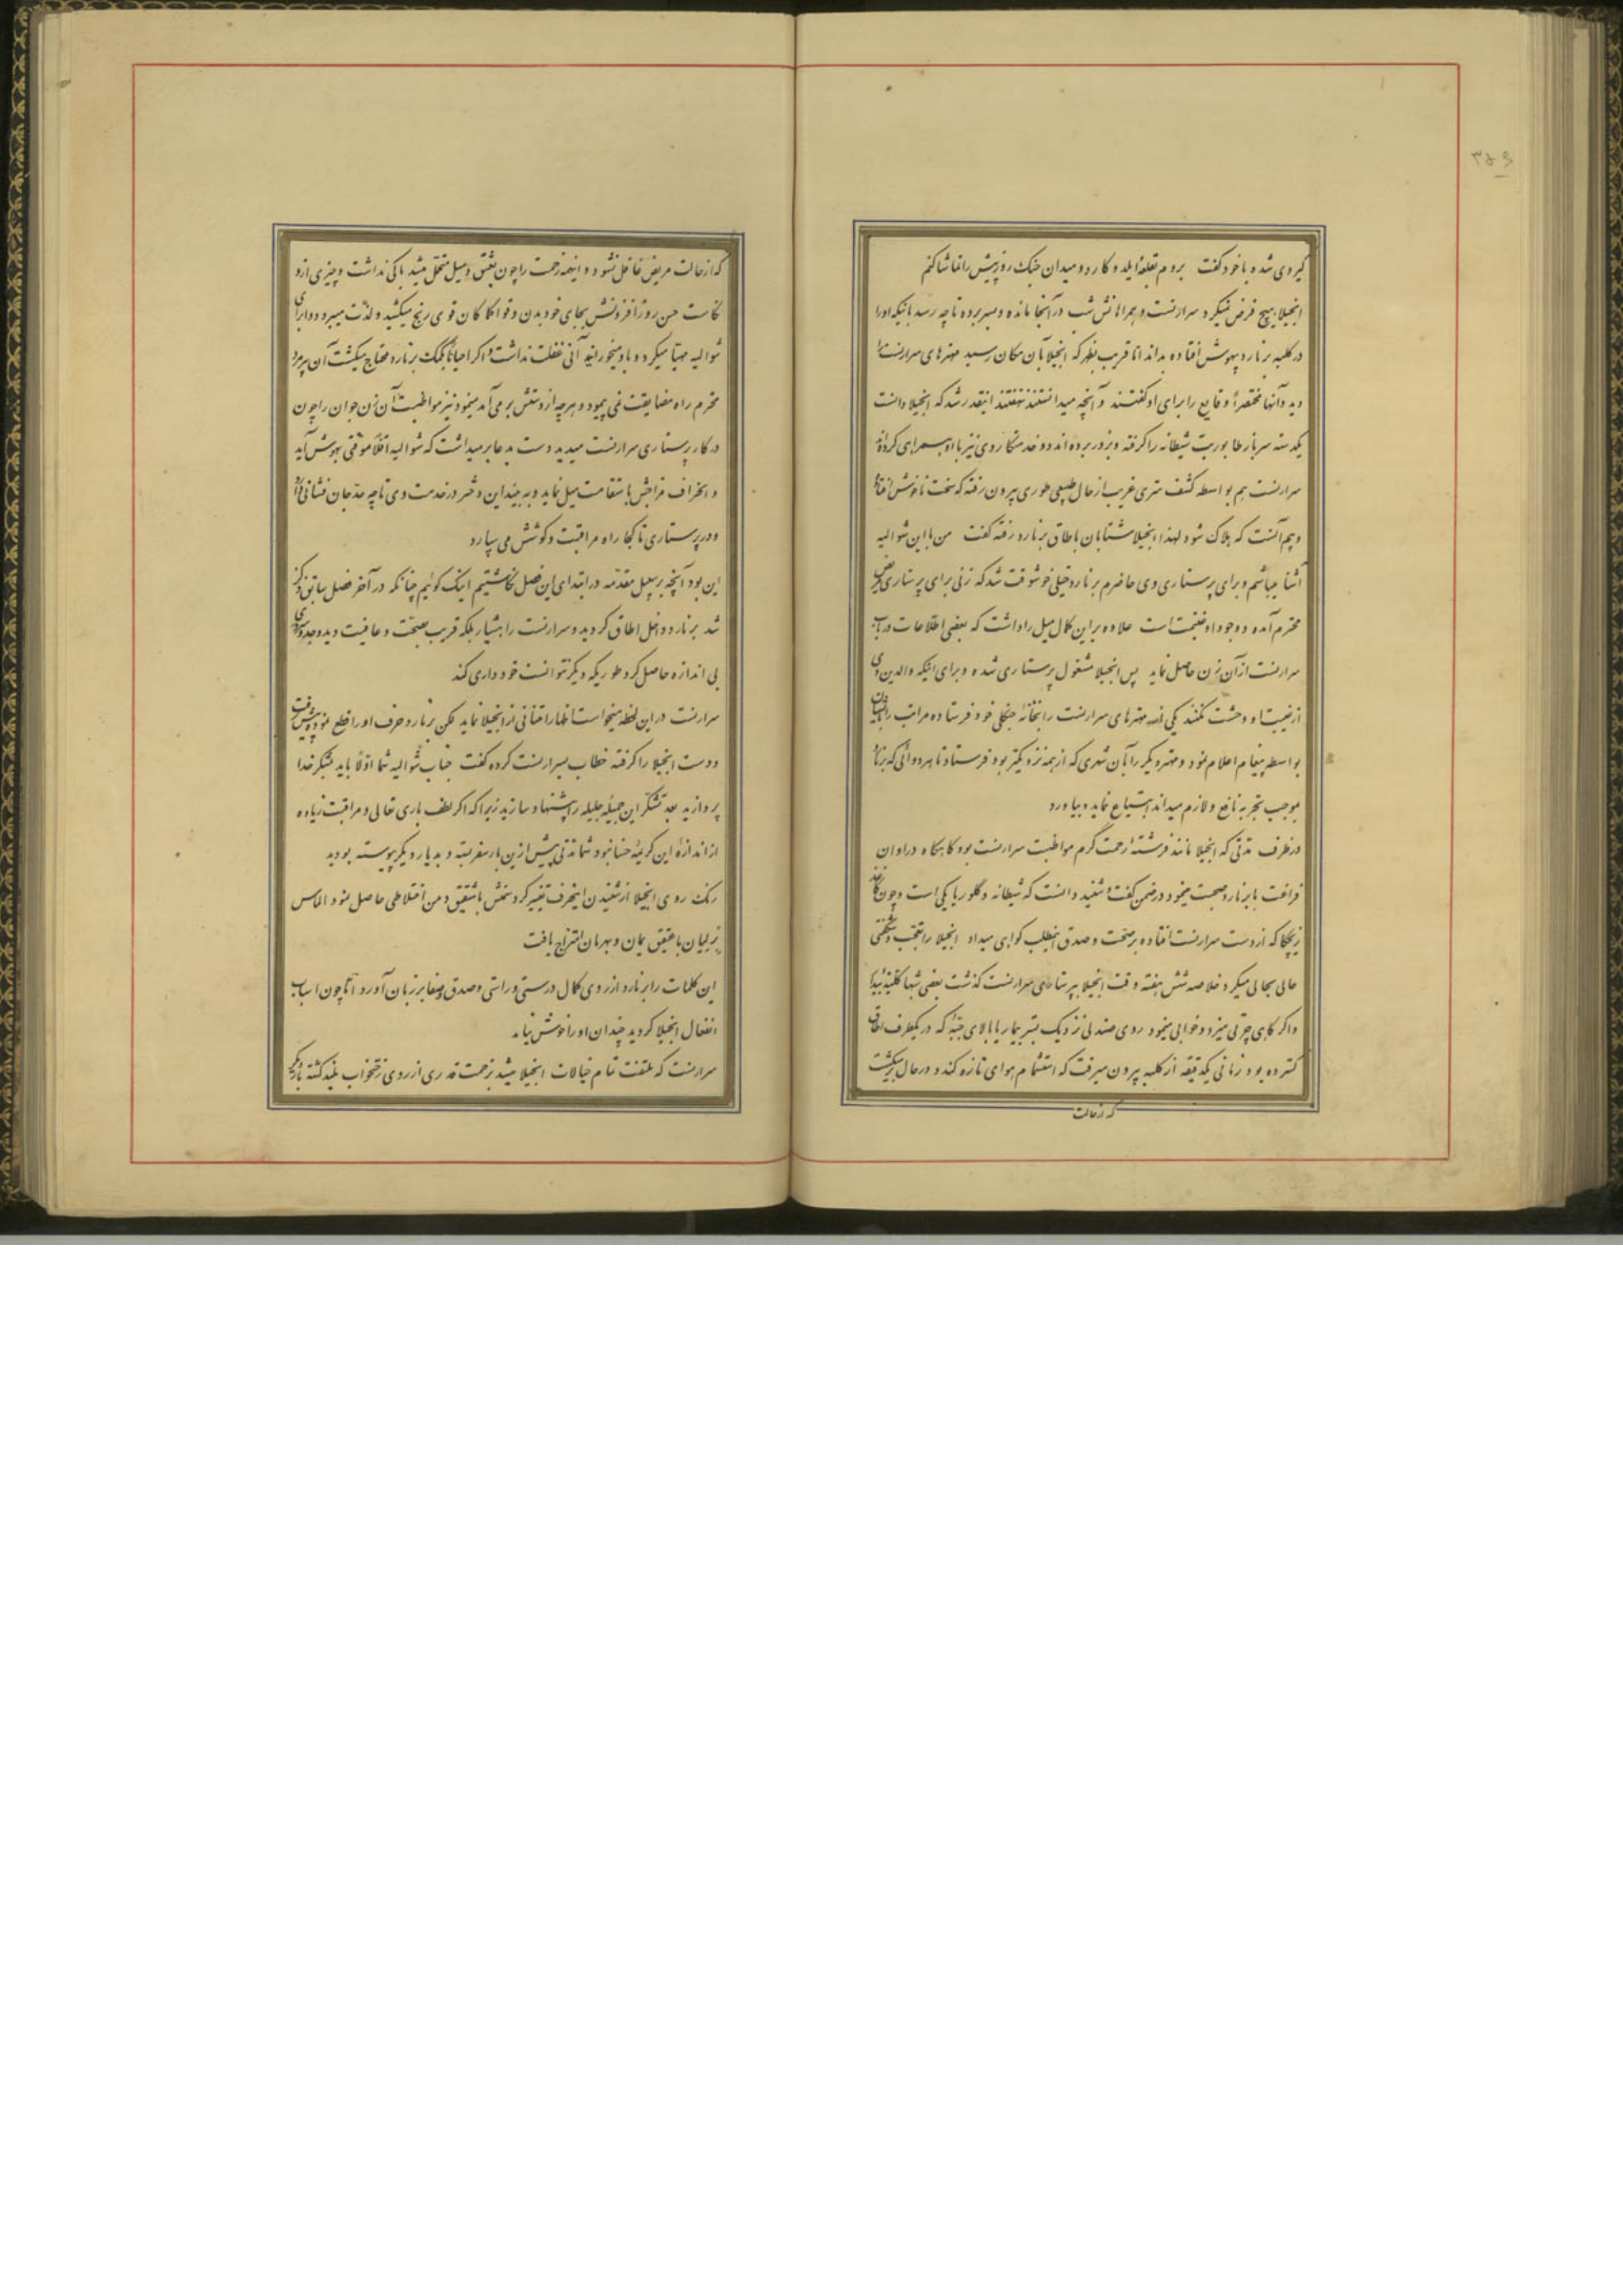 ۳۵۶
گیر دی شده با خود گفت بروم بقلعه ایلد و کار دو میدان جنگ روز پیش را تماشا کنم
انجیلا هیچ فرض نمیکرد سرارنست و همراهانش شب در آنجا مانده و بسر برده تا چه رسد باینکه او را
در کلبه برنارد بیهوش افتاده بداند اما قریب بظهر که انجیلا بآن مکان رسید مهترهای سرارنست را
دید و آنها مختصراً وقایع را برای او گفتند و آنچه میدانستند نهفتند اینقدر شد که انجیلا دانست
یکدسته سرباز طابوریت شیطانه را گرفته و بزور برده اند و خدمتکار وی نیز با او همراهی کرده
سرارنست هم بواسطه کشف سری غریب از حال طبیعی طوری بیرون رفته که سخت ناخوش افتاده
و بیم آنست که هلاک شود لهذا انجیلا شتابان باطاق برنارد رفته گفت من با این شوالیه
آشنا میباشم و برای پرستاری وی حاضرم برنارد خیلی خوشوقت شد که زنی برای پرستاری مریض
محترم آمده و وجود او غنیمت است علاوه بر این کمال میل را داشت که بعضی اطلاعات در باب
سرارنست از آن زن حاصل نماید پس انجیلا مشغول پرستاری شده و برای اینکه والدین وی
از غیبت او وحشت نکنند یکی از مهترهای سرارنست را بخانه جنگلی خود فرستاده مراتب را بایشان
بواسطه پیغام اعلام نمود و مهتر دیگر را بآن شهری که از همه نزدیکتر بود فرستاد تا هر دوائی که برنارد
بموجب تجربه نافع و لازم میداند ابتیاع نماید و بیاورد
در ظرف مدتی که انجیلا مانند فرشته رحمت گرم مواظبت سرارنست بود گاهگاه در اوان
فراغت با برنارد صحبت مینمود در ضمن گفت و شنید دانست که شیطانه و گلوریا یکی است و چون کاغذ
زیچکا که از دست سرارنست افتاده بر صحت و صدق اینمطلب گواهی میداد انجیلا را تعجب و شگفتی
حالی بحالی میکرد خلاصه شش هفته وقت انجیلا بپرستاری سرارنست گذشت بعضی شبها کلیةً بیدار
و اگر گاهی چرتی میزد و خوابی مینمود روی صندلی نزدیک بستر بیمار یا بالای جبه که در یکطرف اطاق
گسترده بود زمانی یکدقیقه از کلبه بیرون میرفت که استشمام هوای تازه کند و در حال برمیگشت
که از حالت
که از حالت مریض غافل نشود و اینهمه زحمت را چون بعشق و میل متحمل میشد باکی نداشت و چیزی ازو
نمیکاست حسن روزافزونش بجای خود بدن و قوا کماکان قوی رنج میکشید و لذت میبرد دوا برای
شوالیه مهیا میکرد و باو میخورانید آنی غفلت نداشت و اگر احیاناً بکمک برنارد محتاج میگشت آن پیرمرد
محترم راه مضایقت نمی پیمود و هر چه از دستش بر می آمد مینمود نیز مواظبت آن زن جوان را چون
در کار پرستاری سرارنست میدید دست بدعا برمیداشت که شوالیه اقلاً موقتی بهوش آید
و انحراف مزاجش باستقامت میل نماید و به بیند این دختر در خدمت وی تا چه حد جان فشانی دارد
و در پرستاری تا کجا راه مراقبت و کوشش می سپارد
این بود آنچه بر سبیل مقدمه در ابتدای این فصل نگاشتیم اینک گوئیم چنانکه در آخر فصل سابق ذکر
شد برنارد داخل اطاق گردید و سرارنست را هشیار بلکه قریب بصحت و عافیت دید وجد و سروری
بی اندازه حاصل کرد طوریکه دیگر نتوانست خودداری کند
سرارنست در این لحظه میخواست اظهار امتنانی از انجیلا نماید لکن برنارد حرف او را قطع نمود پیش رفت
و دست انجیلا را گرفته خطاب بسرارنست کرده گفت جناب شوالیه شما اولاً باید بشکر خدا
پردازید بعد تشکر این جمیله جلیله را پیشنهاد سازید زیرا که اگر لطف باری تعالی و مراقبت زیاده
از اندازه این کریمه حسنا نبود شما مدتی پیش ازین بار سفر بسته و بدیار دیگر پیوسته بودید
رنگ روی انجیلا از شنیدن اینحرف تغییر کرد سمنش با شقیق و من اختلاطی حاصل نمود الماس
بریلیان با عقیق یمان و بهرمان امتزاج یافت
این کلمات را برنارد از روی کمال درستی و راستی و صدق و صفا بر زبان آورد اما چون اسباب
انفعال انجیلا گردید چندان او را خوش نیامد
سرارنست که ملتفت تمام خیالات انجیلا میشد بزحمت قدری از روی رختخواب بلند گشته بار دیگر